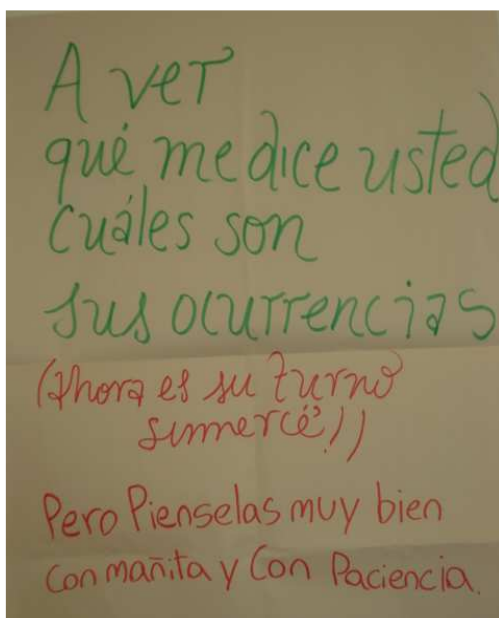 A ver
qué me dice usted
cuáles son
sus ocurrencias
(Ahora es su turno
sumercé!!)
Pero Pienselas muy bien
Con mañita y Con Paciencia.